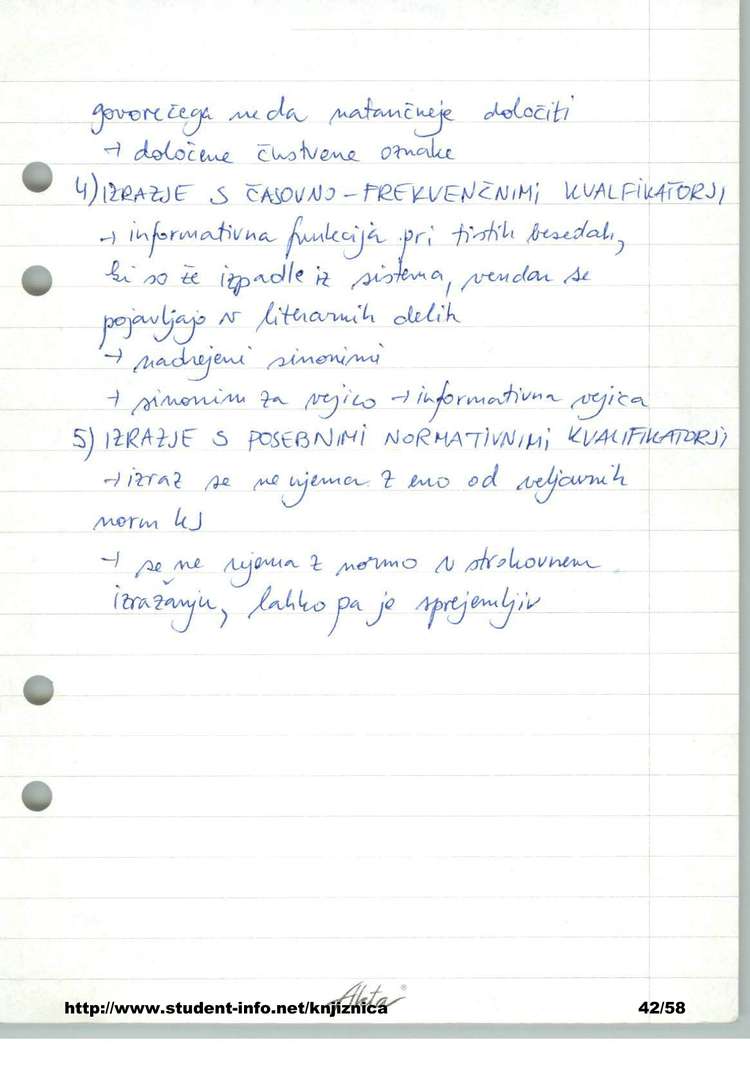 govorečega ne da natančneje določiti
→ določene čustvene oznake
4) IZRAZJE S ČASOVNO-FREKVENČNIMI KVALFIKATORJI
→ informativna funkcija pri tistih besedah,
ki so že izpadle iz sistema, vendar se
pojavljajo v literarnih delih
→ nadrejeni sinonimi
→ sinonim za vejico → informativna vejica
5) IZRAZJE S POSEBNIMI NORMATIVNIMI KVALIFIKATORJI
→ izraz se ne ujema z eno od veljavnih
norm KJ
→ se ne ujema z normo v strokovnem
izražanju, lahko pa je sprejemljiv
Aleta®
http://www.student-info.net/knjiznica 42/58